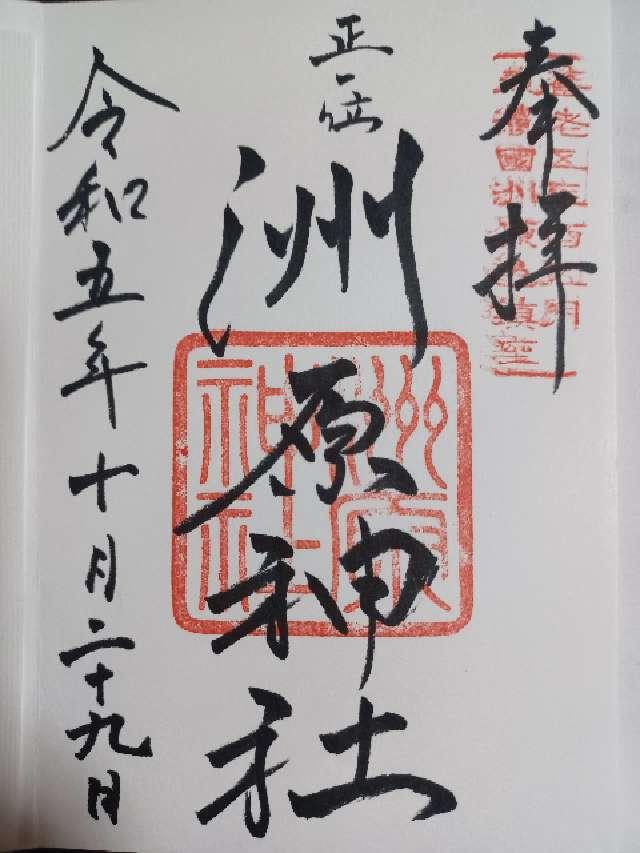 奉拝
正一位
洲原神社
洲原神社
令和五年十月二十九日